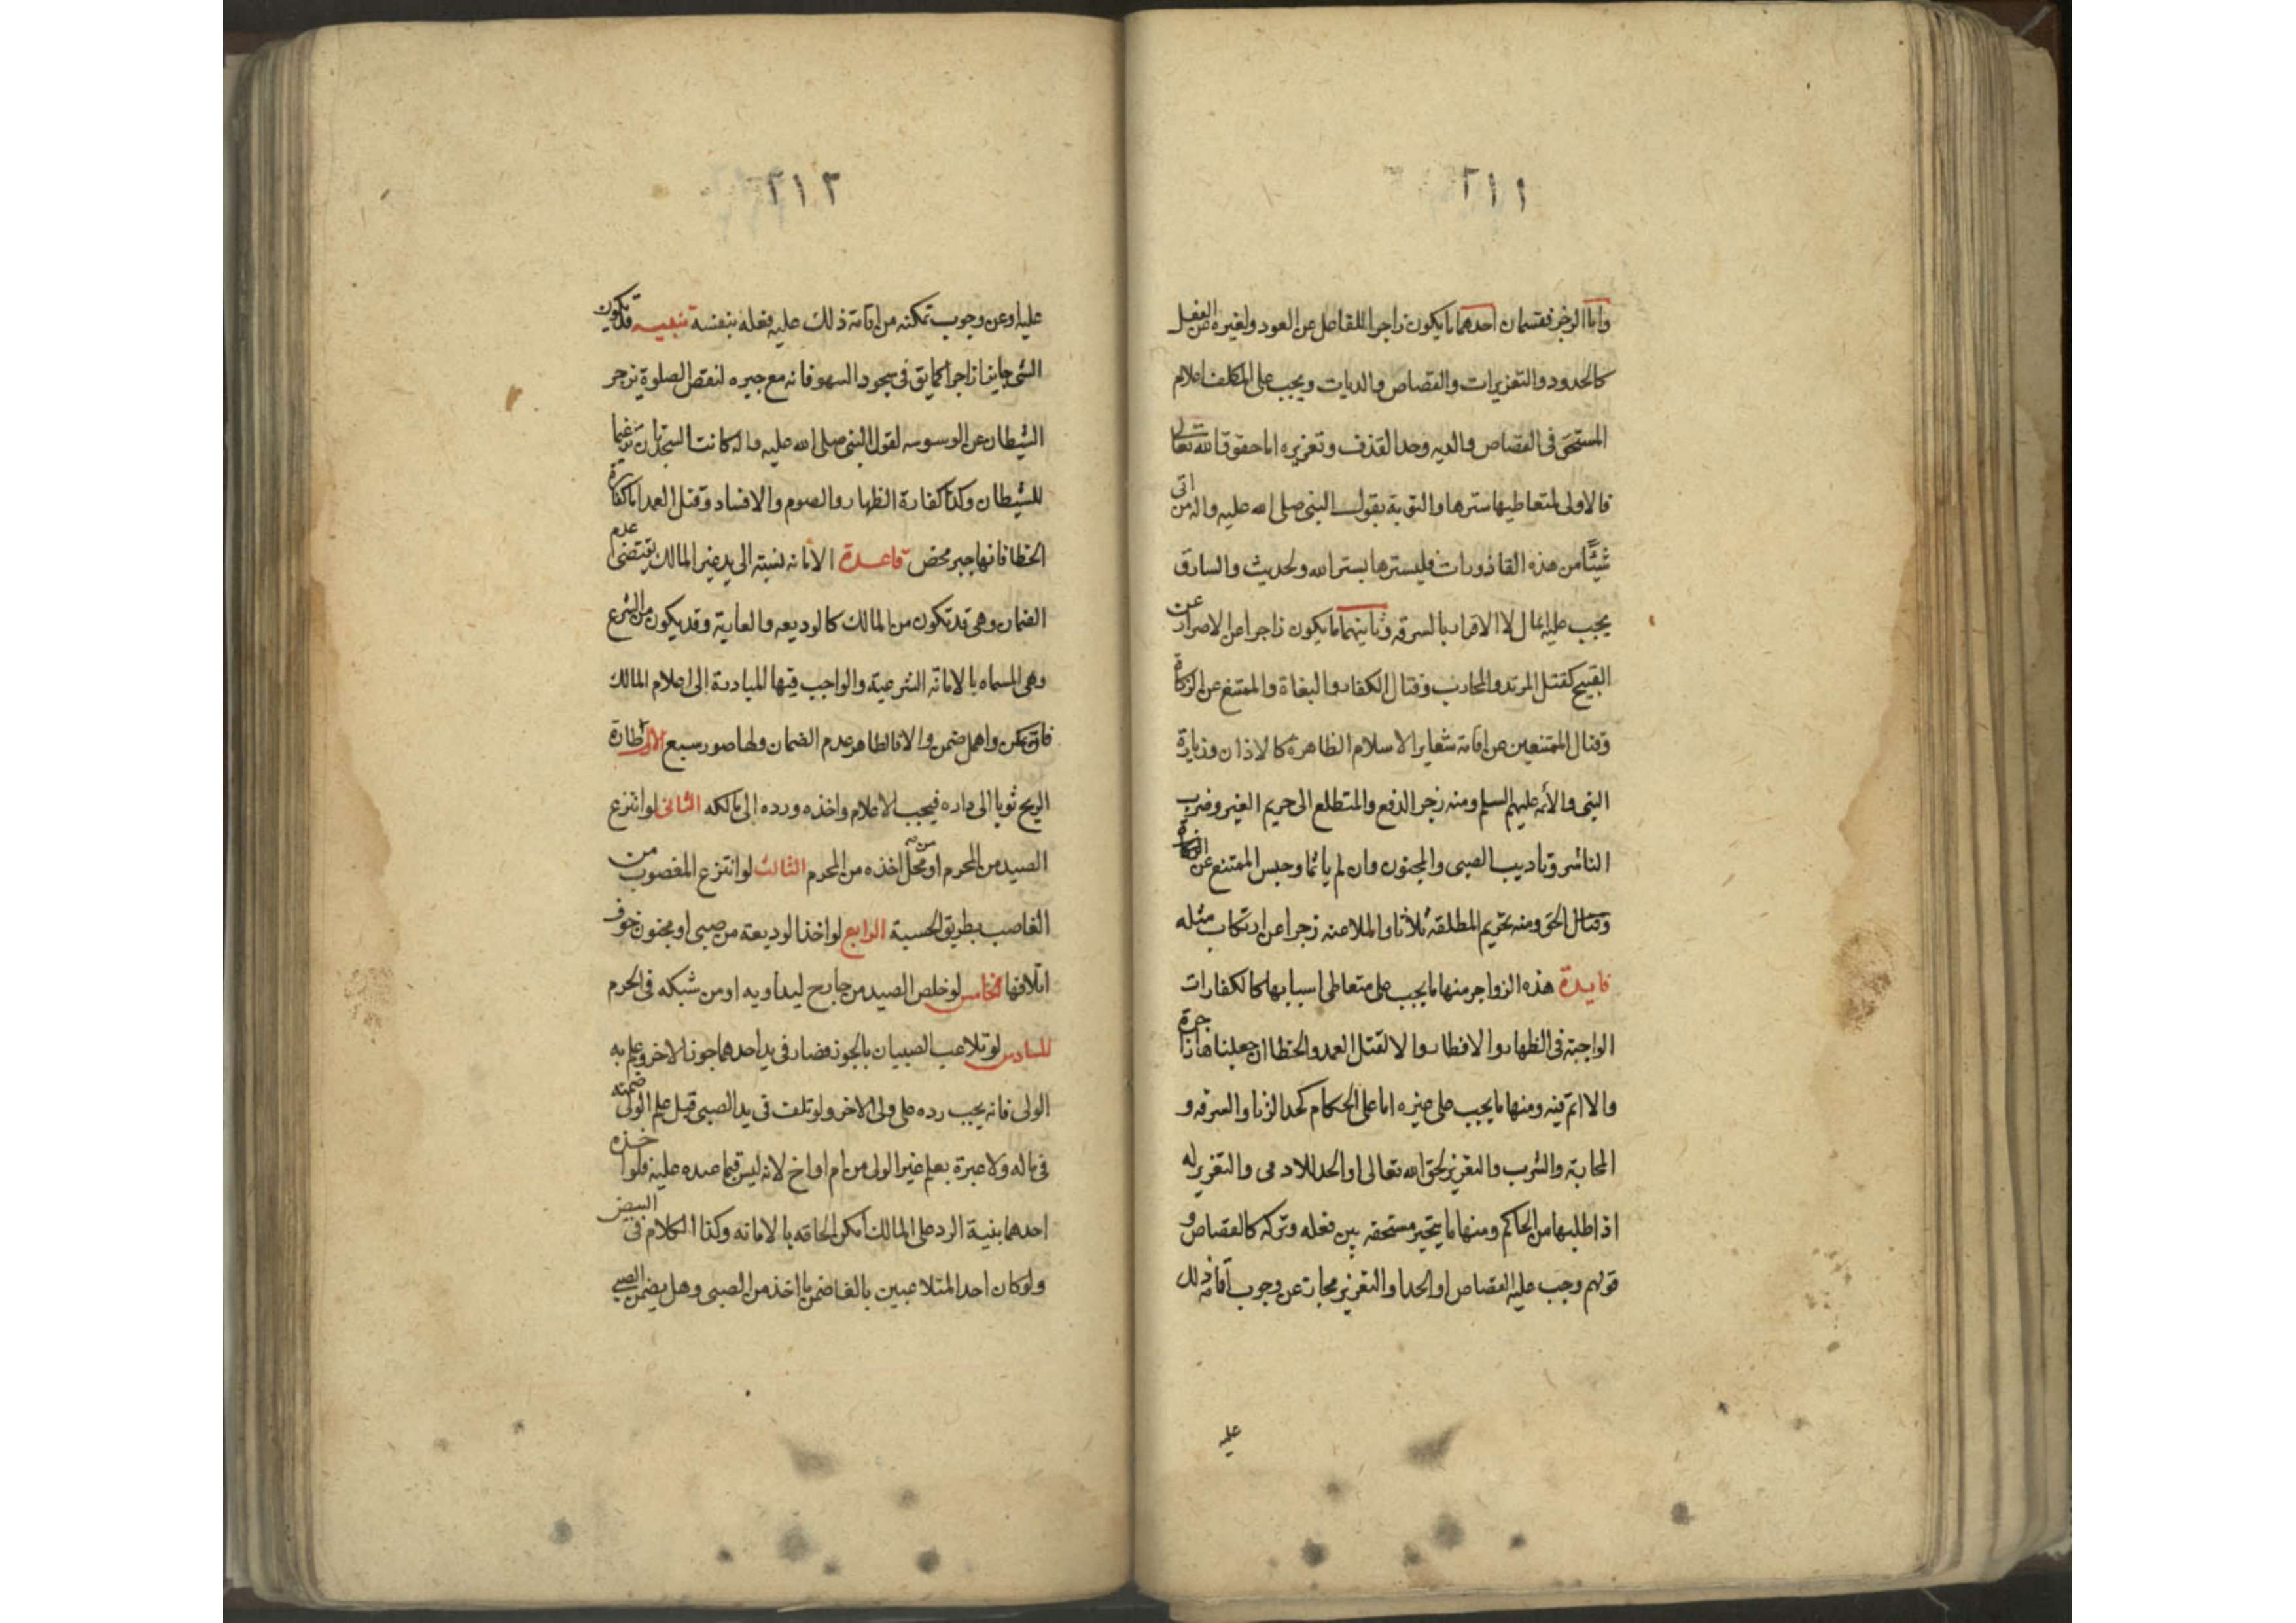 ٢١١
واما الزجر فقسمان احدهما ما يكون زاجرا للفاعل عن العود ولغيره عن الفعل
كالحدود والتعزيرات والقصاص والديات ويجب على المكلف اعلام
المستحق فى القصاص والديه وحد القذف وتعزيره اما حقوق الله تعالى
فالاولى لمتعاطيها سترها والتوبة بقول النبى صلى الله عليه واله من اتى
شيئا من هذه القاذورات فليسترها بستر الله ولحديث والسارق
يجب عليه لا الاقرار بالسرقه وثانيهما ما يكون زاجرا عن الاصرار على
القبيح كقتل المرتد والمحارب وقتال الكفار والبغاة والممتنع عن الزكاة
وقتال الممتنعين عن اقامة شعاير الاسلام الظاهرة كالاذان وزيارة
النبى والأئمه عليهم السلم ومنه زجر الدفع والمتطلع الى حريم الغير وضرب
الناشر وتاديب الصبى والمجنون وان لم ياثما وحبس الممتنع عن الزكاة
وقتال الحق ومنه تحريم المطلقة ثلاثا والملاعنه زجرا عن ارتكاب مثله
فايدة هذه الزواجر منها ما يجب على متعاطى اسبابها كالكفارات
الواجبة فى الظهار والافطار والا لقتل العمد والخطا ان جعلناها زاجرة
والا اثم فيه ومنها ما يجب على غيره اما على الحكام كحد الزنا والسرقه و
المحابة والشرب والتعزير لحق الله تعالى او الحد للادمى والتعزير له
اذا طلبها من الحاكم ومنها ما يتخير مستحقه بين فعله وتركه كالقصاص و
قولهم وجب عليه القصاص او الحد او التعزير مجاز عن وجوب اقامة ذلك
عليه
٢١٢
عليه او عن وجوب تمكنه من اقامة ذلك عليه فعله بنفسه تنبيه قد يكون
الشى جابرا زاجرا كما يق فى سجود السهو فانه مع جبره لنقص الصلوة يزجر
الشيطان عن الوسوسه لقول النبى صلى الله عليه واله كانت السجدتان ترغيما
للشيطان وكذا كفارة الظهار والصوم والافساد وقتل العمد اما كفارة
الخطا فانها جبر محض قاعدة الامانه لنسبته الى يد غير المالك يقتضى عدم
الضمان وهى قد تكون من المالك كالوديعه والعارية وقد يكون من الشرع
وهى المسماه بالامانه الشرعية والواجب فيها المبادرة الى اعلام المالك
فان تمكن واهمل ضمن والا فالظاهر عدم الضمان ولها صور سبع الاولى اطارة
الريح ثوبا الى داره فيجب الاعلام واخذه ورده الى مالكه الثانى لو انتزع
الصيد من المحرم او محل اخذه من المحرم الثالث لو انتزع المغصوب من
الغاصب بطريق الحسبة الرابع لو اخذ الوديعة من صبى او مجنون خوف
اتلافها الخامس لو خلص الصيد من جارح ليداويه او من شبكه فى الحرم
السادس لو تلاعب الصبيان بالجوز فصار فى يد احدهما جوز الاخر وعلم به
الولى فانه يجب رده على ولى الاخر ولو تلفت فى يد الصبى قبل علم الولى ضمنه
فى ماله ولا عبرة بعلم غير الولى من ام او اخ لانه ليس قيما عنده عليه فلو اخذه
احدهما بنية الرد على المالك امكن الحاقه بالامانه وكذا الكلام فى البيض
ولو كان احد المتلاعبين بالغا ضمن ما اخذ من الصبى وهل يضمن الصبى